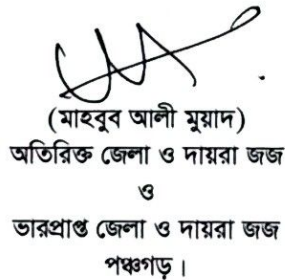 (মাহবুব আলী মুয়াদ)
অতিরিক্ত জেলা ও দায়রা জজ
ও
ভারপ্রাপ্ত জেলা ও দায়রা জজ
পঞ্চগড়।